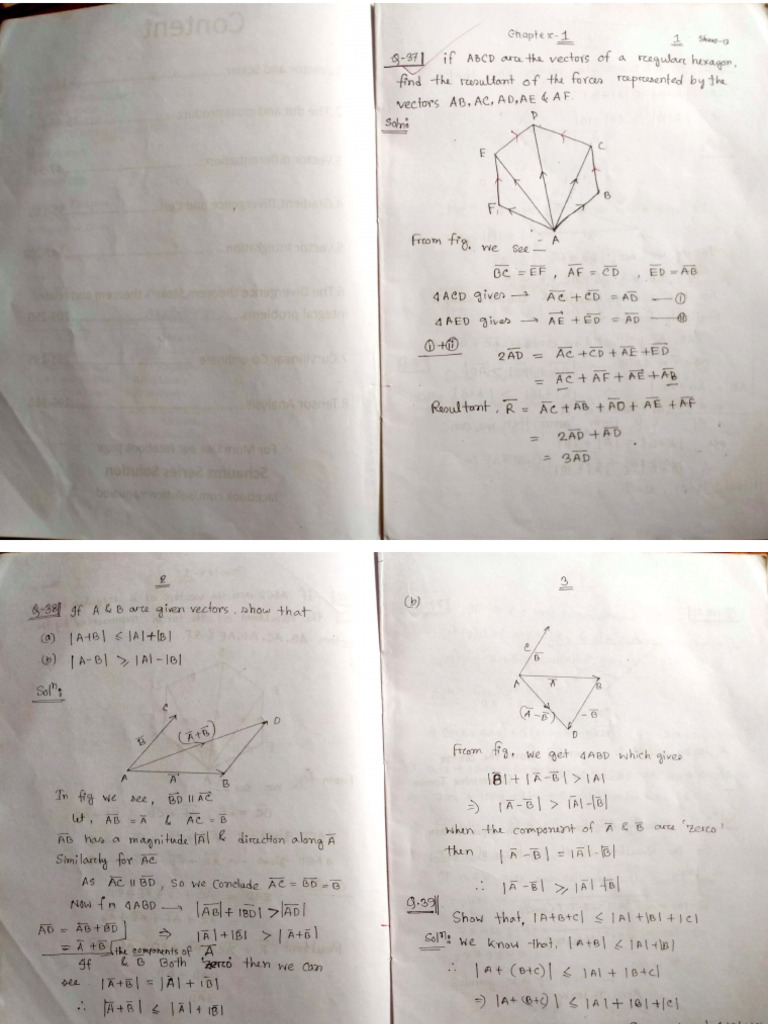 Chapter-1
1
Q-37 if ABCD are the vectors of a regular hexagon,
find the resultant of the forces represented by the
vectors AB, AC, AD, AE & AF.
Soln:
D
E
C
B
F
A
From fig, we see —
B̅C̅ = E̅F̅ , A̅F̅ = C̅D̅ , E̅D̅ = A̅B̅
ΔACD gives → A̅C̅ + C̅D̅ = A̅D̅ — (i)
ΔAED gives → A̅E̅ + E̅D̅ = A̅D̅ — (ii)
(i)+(ii)
2A̅D̅ = A̅C̅ + C̅D̅ + A̅E̅ + E̅D̅
= A̅C̅ + A̅F̅ + A̅E̅ + A̅B̅
Resultant, R̅ = A̅C̅ + A̅B̅ + A̅D̅ + A̅E̅ + A̅F̅
= 2A̅D̅ + A̅D̅
= 3A̅D̅
2
Q-38 If A & B are given vectors, show that
(a) |A+B| ≤ |A|+|B|
(b) |A-B| ≥ |A|-|B|
Solⁿ:
C
D
B̅
(A̅+B̅)
A
A̅
B
In fig we see, B̅D̅ || A̅C̅
Let, A̅B̅ = A̅ & A̅C̅ = B̅
A̅B̅ has a magnitude |A̅| & direction along A̅
Similarly for A̅C̅
As A̅C̅ || B̅D̅, so we conclude A̅C̅ = B̅D̅ = B̅
Now fn ΔABD → |A̅B̅| + |B̅D̅| > |A̅D̅|
A̅D̅ = A̅B̅ + B̅D̅
= A̅ + B̅
⇒ |A̅| + |B̅| > |A̅+B̅|
If the components of A̅ & B Both 'zero' then we can
see |A̅+B̅| = |A̅| + |B̅|
∴ |A̅+B̅| ≤ |A̅| + |B̅|
3
(b)
C
B̅
A
A̅
B
(A̅-B̅)
-B̅
D
From fig, we get ΔABD which gives
|B̅| + |A̅-B̅| > |A|
⇒ |A̅-B̅| > |A̅|-|B̅|
when the component of A̅ & B̅ are 'zero'
then |A̅-B̅| = |A̅|-|B̅|
∴ |A̅-B̅| ≥ |A̅|-|B̅|
Q-39
Show that, |A+B+C| ≤ |A|+|B|+|C|
Solⁿ: we know that, |A+B| ≤ |A|+|B|
∴ |A+(B+C)| ≤ |A| + |B+C|
⇒ |A+(B+C)| ≤ |A|+|B|+|C|